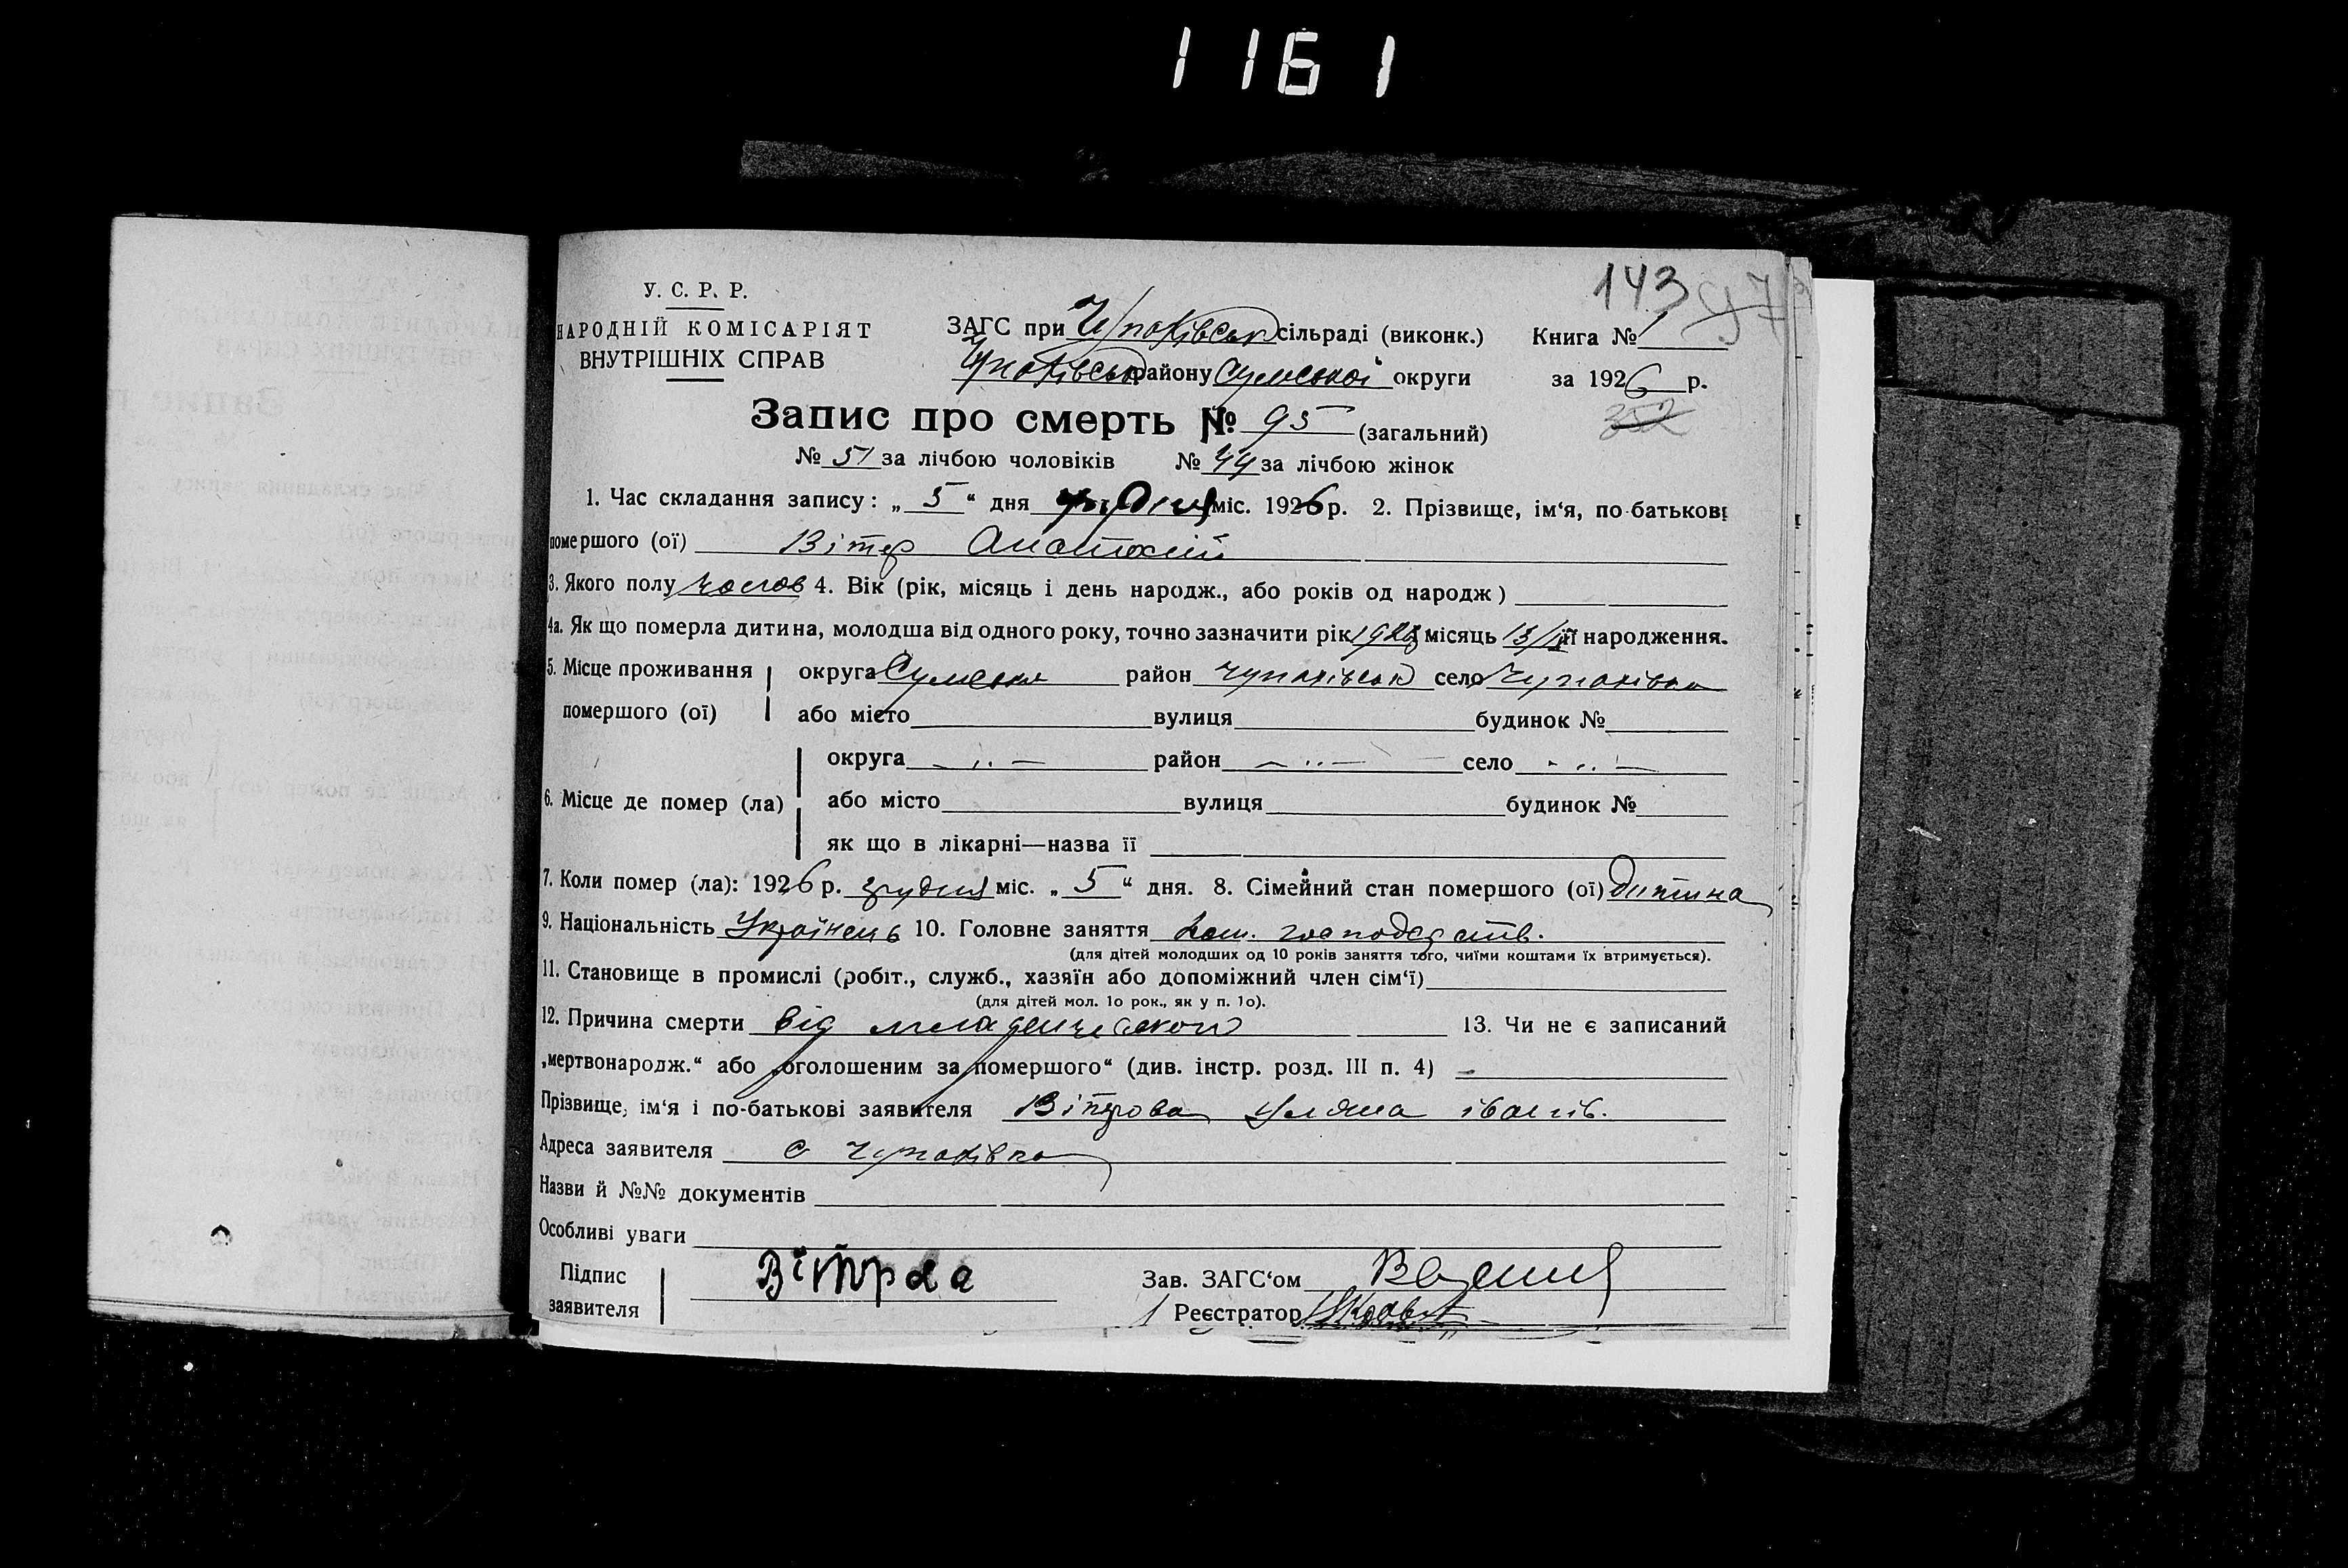 1161
143 97
У. С. Р. Р.
НАРОДНІЙ КОМІСАРІЯТ
ВНУТРІШНІХ СПРАВ
ЗАГС при Чупахівськ сільраді (виконк.) Книга № 1
Чупахівськ району Сумської округи за 1926 р.
Запис про смерть № 95 (загальний) 352
№ 51 за лічбою чоловіків № 44 за лічбою жінок
1. Час складання запису: „ 5 “ дня грудня міс. 1926 р. 2. Прізвище, ім‘я, по-батькові
помершого (ої) Вітер Анатолій
3. Якого полу чолов 4. Вік (рік, місяць і день народж., або років од народж)
4а. Як що померла дитина, молодша від одного року, точно зазначити рік місяць її народження.
5. Місце проживання округа Сумська район Чупахівськ село Чупахівка
помершого (ої) або місто вулиця будинок №
округа — „ — район — „ — село — „ —
6. Місце де помер (ла) або місто вулиця будинок №
як що в лікарні—назва її
7. Коли помер (ла): 1926 р. грудня міс. „ 5 “ дня. 8. Сімейний стан помершого (ої) дитина
9. Національність Українець 10. Головне заняття господарств.
(для дітей молодших од 10 років заняття того, чиїми коштами їх втримується).
11. Становище в промислі (робіт., служб., хазяїн або допоміжний член сім‘ї)
(для дітей мол. 1о рок., як у п. 1о).
12. Причина смерти від младенческой 13. Чи не є записаний
„мертвонародж.“ або „оголошеним за помершого“ (див. інстр. розд. III п. 4) —
Прізвище, ім‘я і по-батькові заявителя Вітрова Уляна іванів.
Адреса заявителя с Чупахівка
Назви й №№ документів
Особливі уваги
Підпис
заявителя Вітрва
Зав. ЗАГС‘ом
Реєстратор